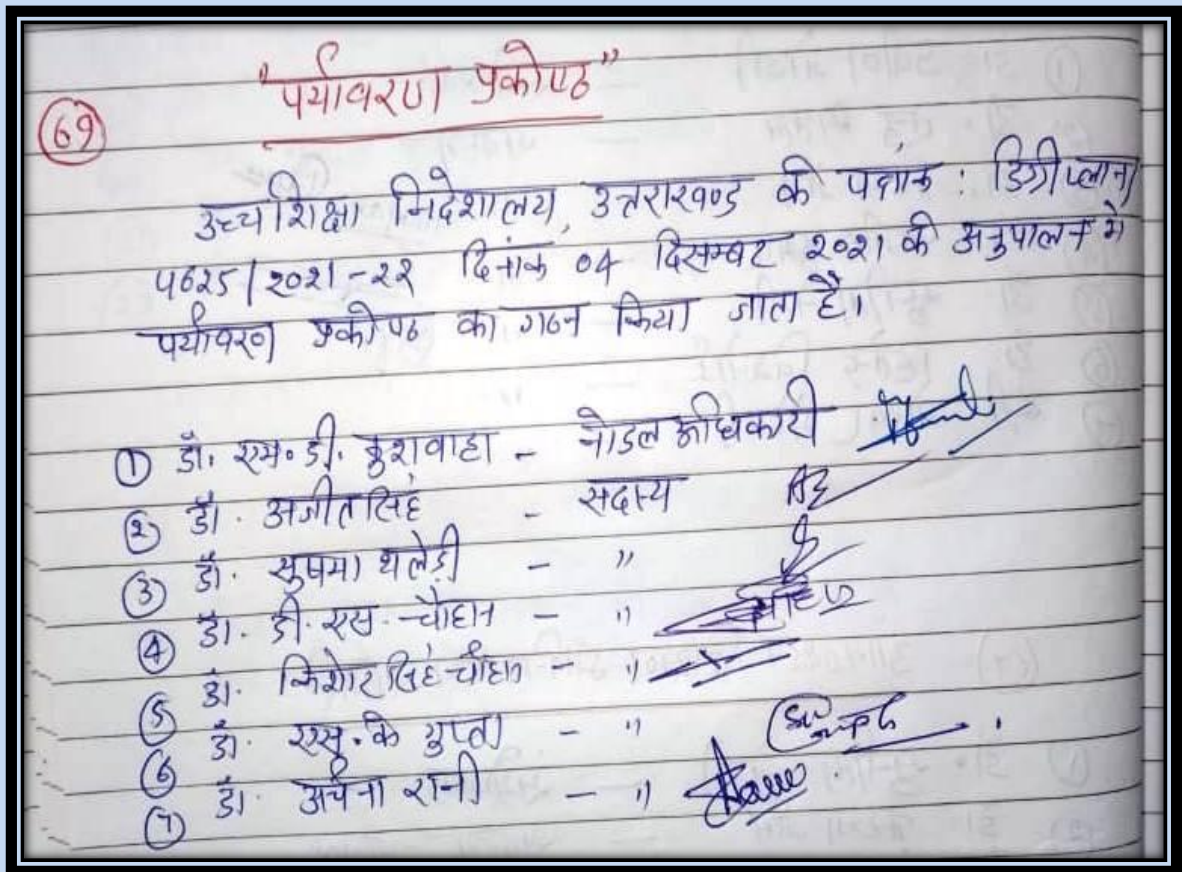 "पर्यावरण प्रकोष्ठ"
(69)
उच्च शिक्षा निदेशालय, उत्तराखण्ड के पत्रांक : डिग्री प्लान/
4625/2021-22 दिनांक 04 दिसम्बर 2021 के अनुपालन मे
पर्यावरण प्रकोष्ठ का गठन किया जाता है।
① डॉ. एस. डी. कुशवाहा - नोडल अधिकारी
② डॉ. अजीत सिंह - सदस्य
③ डॉ. सुषमा थलेड़ी - "
④ डॉ. डी. एस. चौहान - "
⑤ डॉ. किशोर सिंह चौहान - "
⑥ डॉ. एस. के गुप्ता - "
⑦ डॉ. अर्चना रानी - "